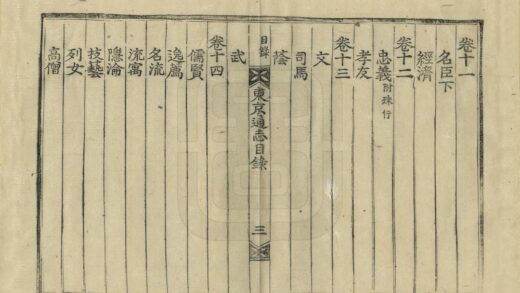 卷十一
名臣下
經濟
卷十二
忠義附殊行
孝友
卷十三
文
司馬
蔭
目錄
東京通志目錄
三
武
卷十四
儒賢
逸薦
名流
流寓
隱淪
技藝
列女
高僧